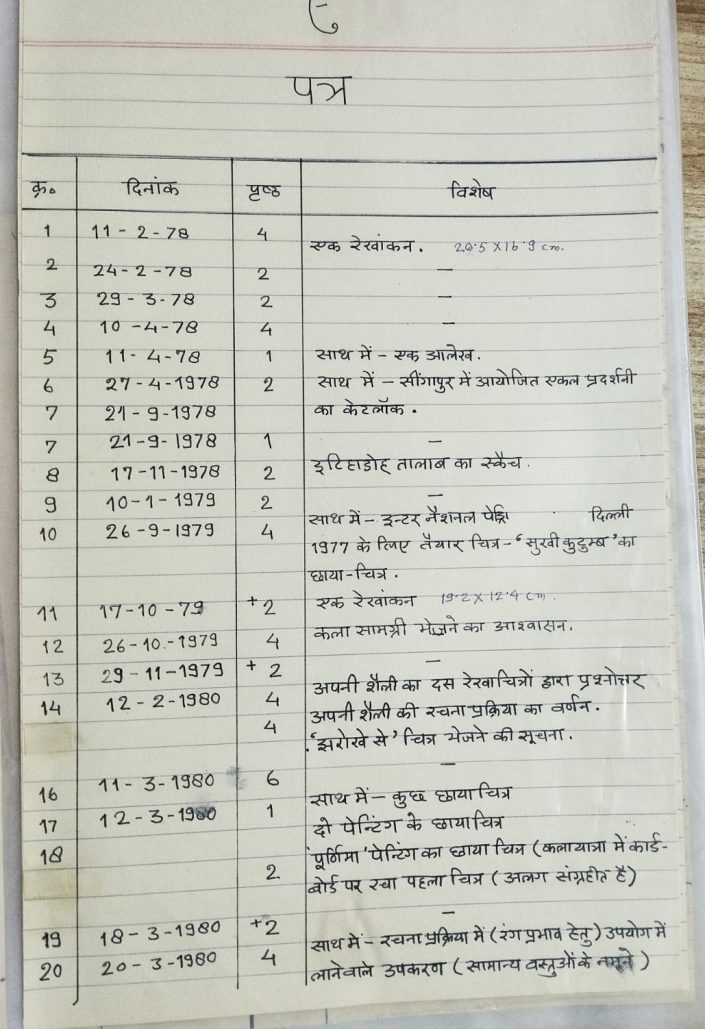 ९
पत्र
क्र० दिनांक पृष्ठ विशेष
1 11-2-78 4 एक रेखांकन. 20.5 X 16.9 cm.
2 24-2-78 2 —
3 29-3-78 2 —
4 10-4-78 4 —
5 11-4-78 1 साथ में - एक आलेख.
6 27-4-1978 2 साथ में - सींगापुर में आयोजित एकल प्रदर्शनी
7 21-9-1978 का केटलॉक.
7 21-9-1978 1 —
8 17-11-1978 2 इटिहाडोह तालाब का स्कैच.
9 10-1-1979 2 —
10 26-9-1979 4 साथ में - इन्टर नैशनल दिल्ली
1977 के लिए तैयार चित्र - ‘सुखी कुटुम्ब’ का
छाया-चित्र.
11 17-10-79 +2 एक रेखांकन 19.2 X 12.4 cm.
12 26-10-1979 4 कला सामग्री भेजने का आश्वासन.
13 29-11-1979 +2 —
14 12-2-1980 4 अपनी शैली का दस रेखाचित्रों द्वारा प्रश्नोत्तर
4 अपनी शैली की रचना प्रक्रिया का वर्णन.
‘झरोखे से’ चित्र भेजने की सूचना.
16 11-3-1980 6 —
17 12-3-1980 1 साथ में - कुछ छायाचित्र
दो पेन्टिंग के छायाचित्र
18 ‘पूर्णिमा’ पेन्टिंग का छाया चित्र (कलायात्रा में कार्ड-
2. बोर्ड पर रचा पहला चित्र (अलग संग्रहीत है)
19 18-3-1980 +2 —
20 20-3-1980 4 साथ में - रचना प्रक्रिया में (रंग प्रभाव हेतु) उपयोग में
लानेवाले उपकरण (सामान्य वस्तुओं के नमूने)